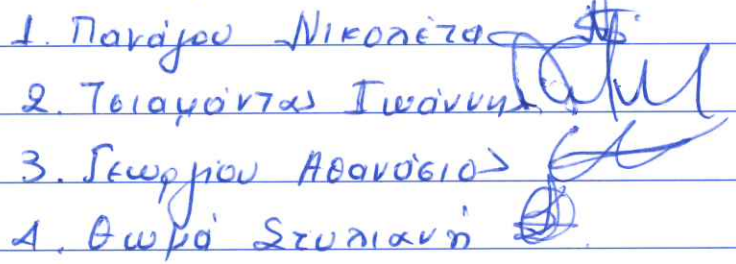 1. Πανάγου Νικολέτα
2. Τσιαμάντας Ιωάννης
3. Γεωργίου Αθανάσιος
4. Θωμά Στυλιανή